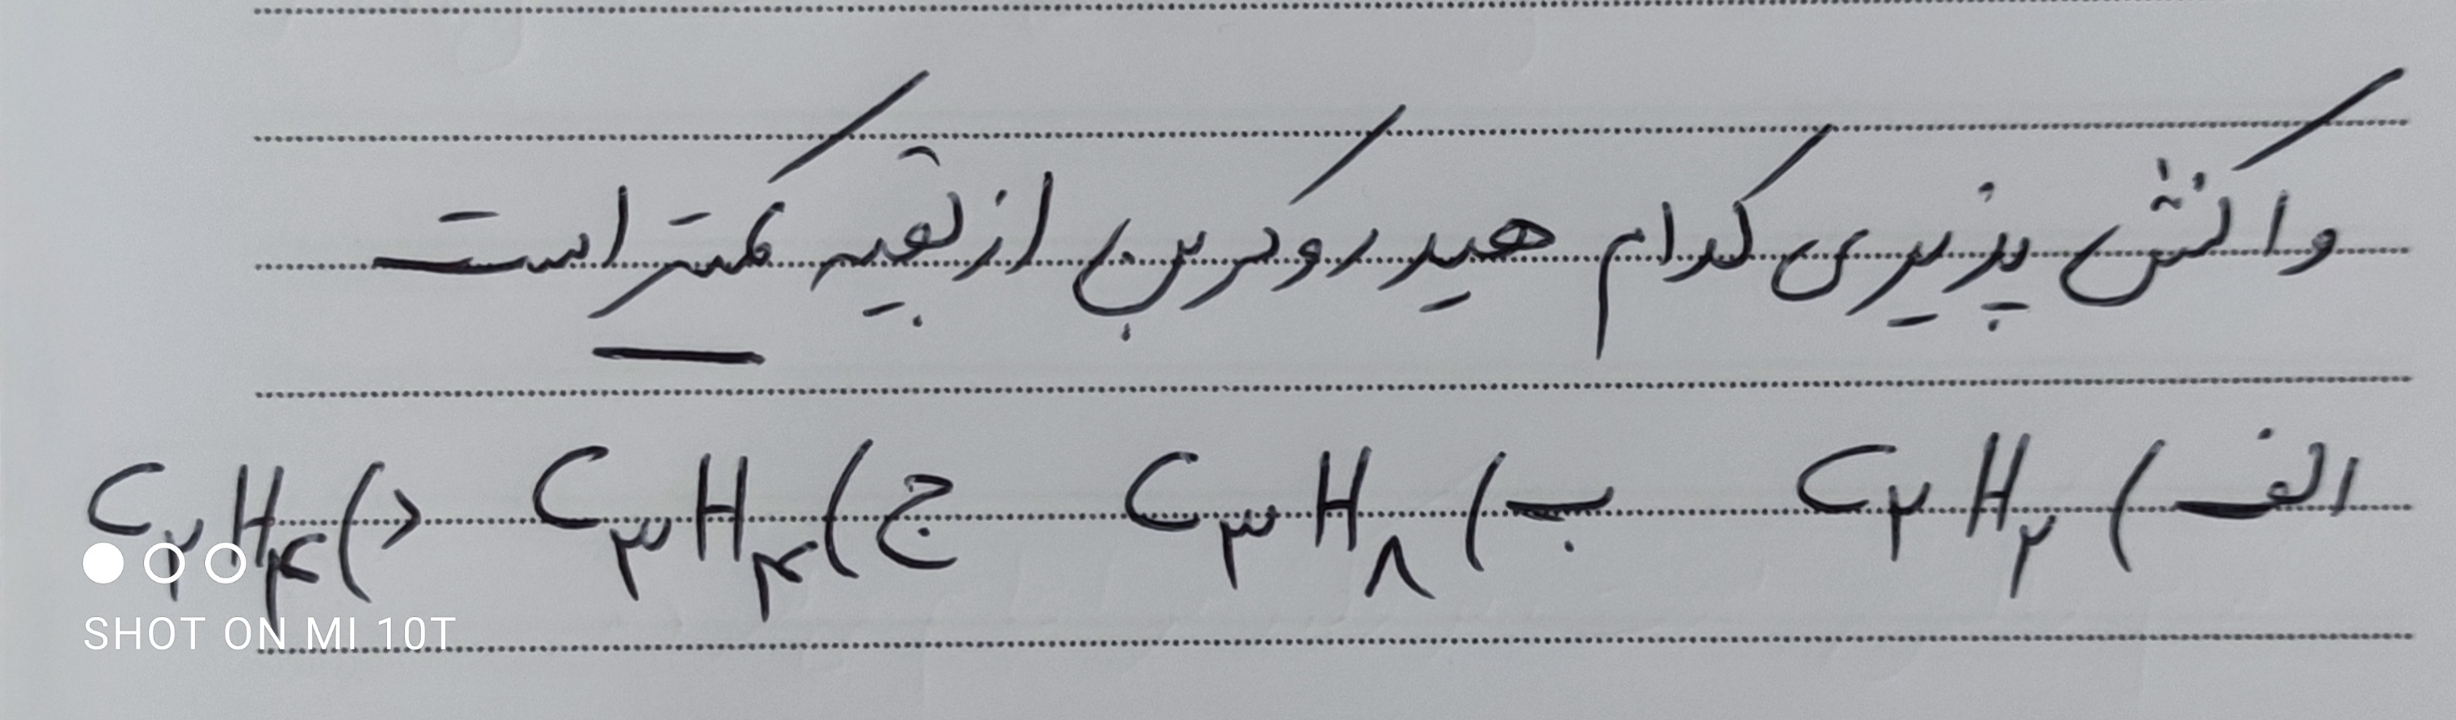 واکنش پذیری کدام هیدروکربن از بقیه کمتر است
الف) C۲H۲ ب) C۳H۸ ج) C۳H۴ د) C۲H۴
SHOT ON MI 10T